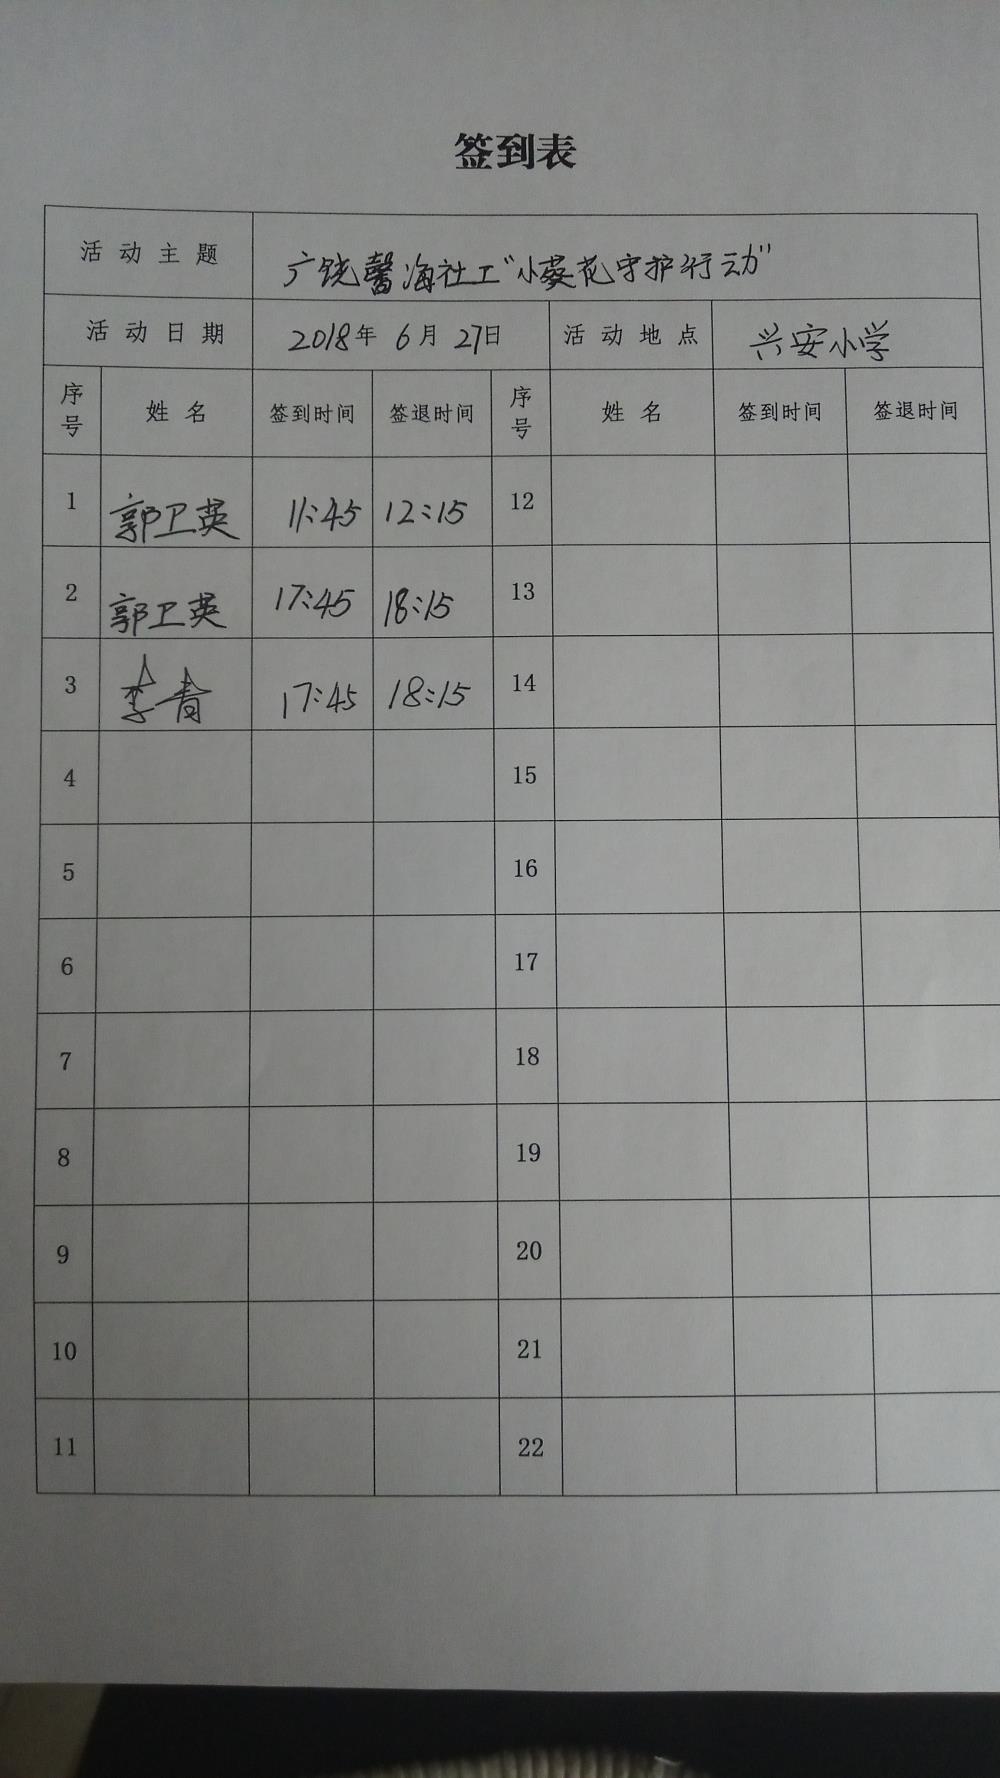 签到表
活动主题 广饶馨海社工“小葵花守护行动”
活动日期 2018年 6月 27日 活动地点 兴安小学
序号 姓名 签到时间 签退时间 序号 姓名 签到时间 签退时间
1 郭卫英 11:45 12:15 12
2 郭卫英 17:45 18:15 13
3 李青 17:45 18:15 14
4 15
5 16
6 17
7 18
8 19
9 20
10 21
11 22